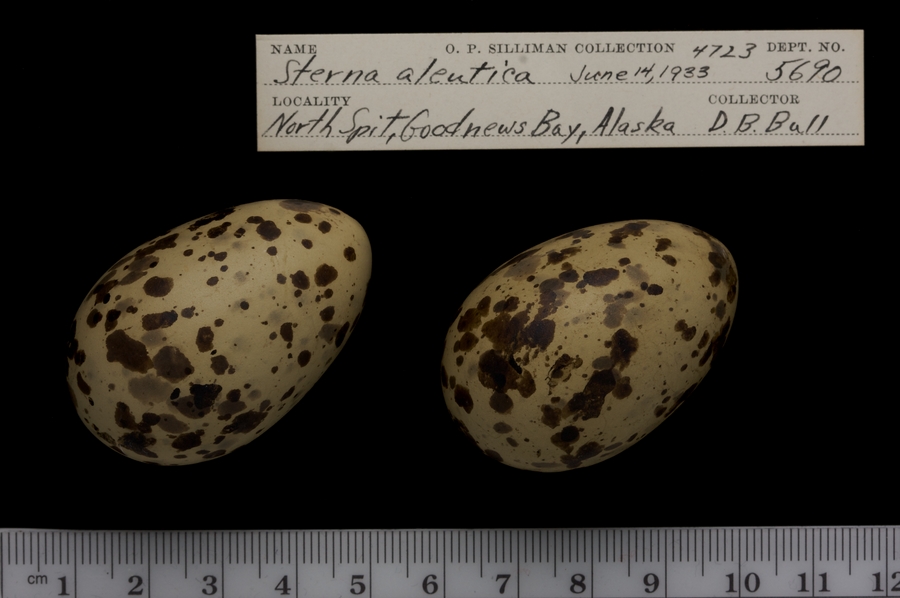 NAME O. P. SILLIMAN COLLECTION 4723 DEPT. NO.
Sterna aleutica June 14, 1933 5690
LOCALITY COLLECTOR
North Spit, Goodnews Bay, Alaska D. B. Bull
cm 1 2 3 4 5 6 7 8 9 10 11 12